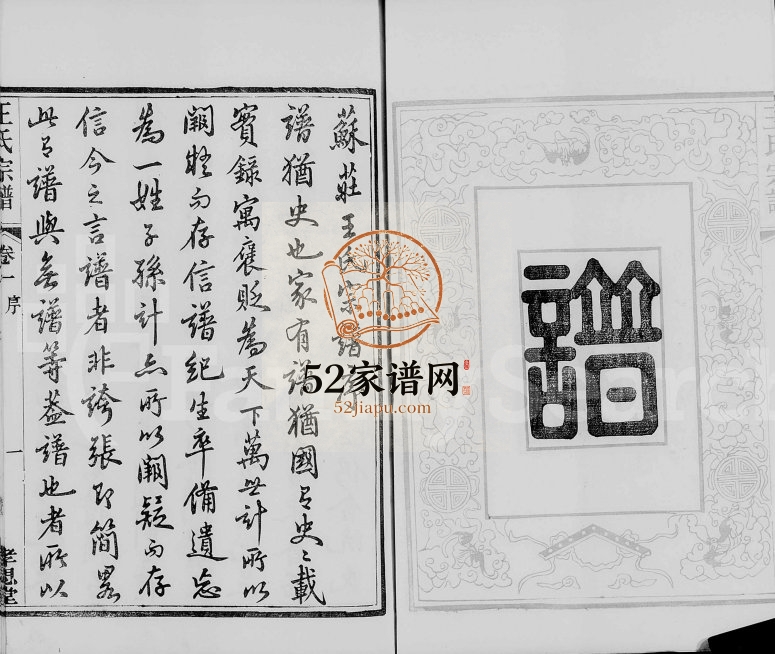 譜
蘇莊王氏宗譜序
譜猶史也家有譜猶國有史〻載
實錄寓褒貶為天下萬世計所以
闕疑而存信譜紀生卒備遺忘
為一姓子孫計亦所以闕疑而存
信今之言譜者非誇張即簡畧
此有譜與無譜等蓋譜也者所以
王氏宗譜
卷一
序
一
孝思堂
52家谱网
52jiapu.com